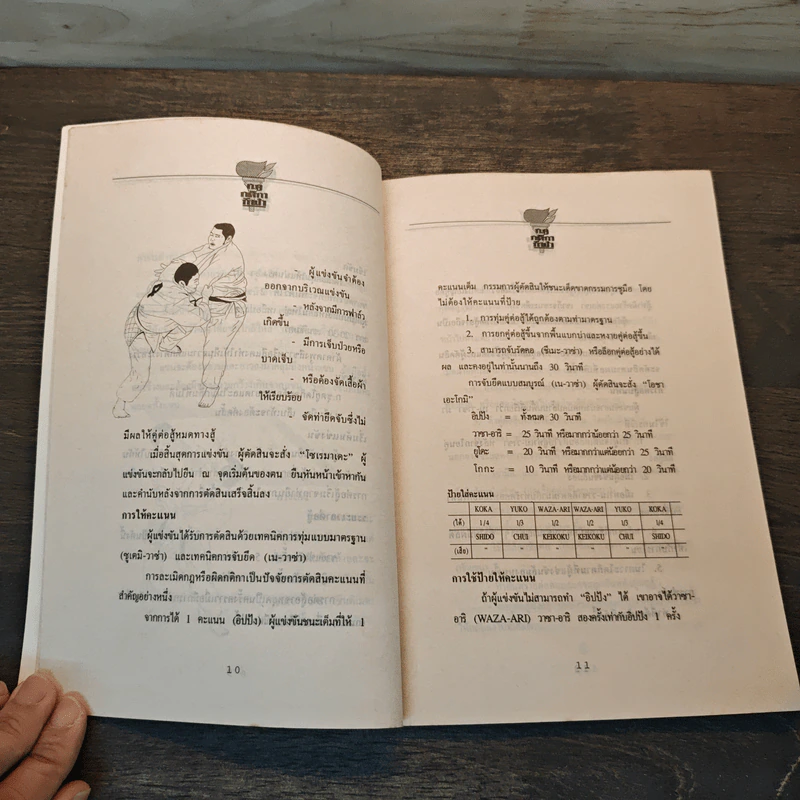 กฎ
กติกา
กีฬา
ผู้แข่งขันจำต้อง
ออกจากบริเวณแข่งขัน
- หลังจากมีการฟาล์ว
เกิดขึ้น
- มีการเจ็บป่วยหรือ
บาดเจ็บ
- หรือต้องจัดเสื้อผ้า
ให้เรียบร้อย
จัดท่ายึดจับซึ่งไม่
มีผลให้คู่ต่อสู้หมดทางสู้
เมื่อสิ้นสุดการแข่งขัน ผู้ตัดสินจะสั่ง "โซเรมาเตะ" ผู้
แข่งขันจะกลับไปยืน ณ จุดเริ่มต้นของตน ยืนหันหน้าเข้าหากัน
และคำนับหลังจากการตัดสินเสร็จสิ้นลง
การให้คะแนน
ผู้แข่งขันได้รับการตัดสินด้วยเทคนิคการทุ่มแบบมาตรฐาน
(ซูเคมิ-วาซ่า) และเทคนิคการจับยึด (เน-วาซ่า)
การละเมิดกฎหรือผิดกติกาเป็นปัจจัยการตัดสินคะแนนที่
สำคัญอย่างหนึ่ง
จากการได้ 1 คะแนน (อิปปัง) ผู้แข่งขันชนะเต็มที่ให้ 1
10
กฎ
กติกา
กีฬา
คะแนนเต็ม กรรมการผู้ตัดสินให้ชนะเด็ดขาดกรรมการชูมือ โดย
ไม่ต้องให้คะแนนที่ป้าย
1. การทุ่มคู่ต่อสู้ได้ถูกต้องตามท่ามาตรฐาน
2. การยกคู่ต่อสู้ขึ้นจากพื้นแบกบ่าและหงายคู่ต่อสู้ขึ้น
3. สามารถจับรัดคอ (ชิเมะ-วาซ่า) หรือล็อกคู่ต่อสู้อย่างได้
ผล และคงอยู่ในท่านั้นนานถึง 30 วินาที
การจับยึดแบบสมบูรณ์ (เน-วาซ่า) ผู้ตัดสินจะสั่ง "โอซา
เอะโกมิ"
อิปปัง = ทั้งหมด 30 วินาที
วาซา-อาริ = 25 วินาที หรือมากกว่าน้อยกว่า 25 วินาที
ยูโคะ = 20 วินาที หรือมากกว่าแต่น้อยกว่า 25 วินาที
โกกะ = 10 วินาที หรือมากกว่าแต่น้อยกว่า 20 วินาที
ป้ายใส่คะแนน
KOKA YUKO WAZA-ARI WAZA-ARI YUKO KOKA
(ได้) 1/4 1/3 1/2 1/2 1/3 1/4
SHIDO CHUI KEIKOKU KEIKOKU CHUI SHIDO
(เสีย) " " " " " "
การใช้ป้ายให้คะแนน
ถ้าผู้แข่งขันไม่สามารถทำ "อิปปัง" ได้ เขาอาจได้วาซา-
อาริ (WAZA-ARI) วาซา-อาริ สองครั้งเท่ากับอิปปัง 1 ครั้ง
11